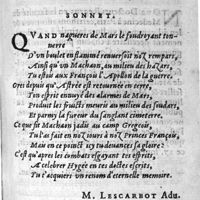 SONNET.
QVAND nagueres de Mars le foudroyant ton-
nerre
D'vn boulet enflammé renuersoit noz rempars,
Ainsi qu'vn Machaon, au milieu des hazars,
Tu estois aux François l'Apollon de la guerre.
Ores depuis qu'Astrée est retournée en terre,
Ton esprit ennuyé des alarmes de Mars,
Produit les fruicts meuris au milieu des soudars,
Et parmy la fureur du sanglant cimeterre.
Ce que fit Machaon jadis au camp Gregeois,
Tu l'as fait en noz jours à noz Princes François,
Mais en ce point icy tu deuances sa gloire:
C'est qu'apres les combats esgayant tes esprits
A celebrer Hygée en tes doctes escrits,
Tu t'acquiers vn renom d'eternelle memoire.
M. LESCARBOT Adu.